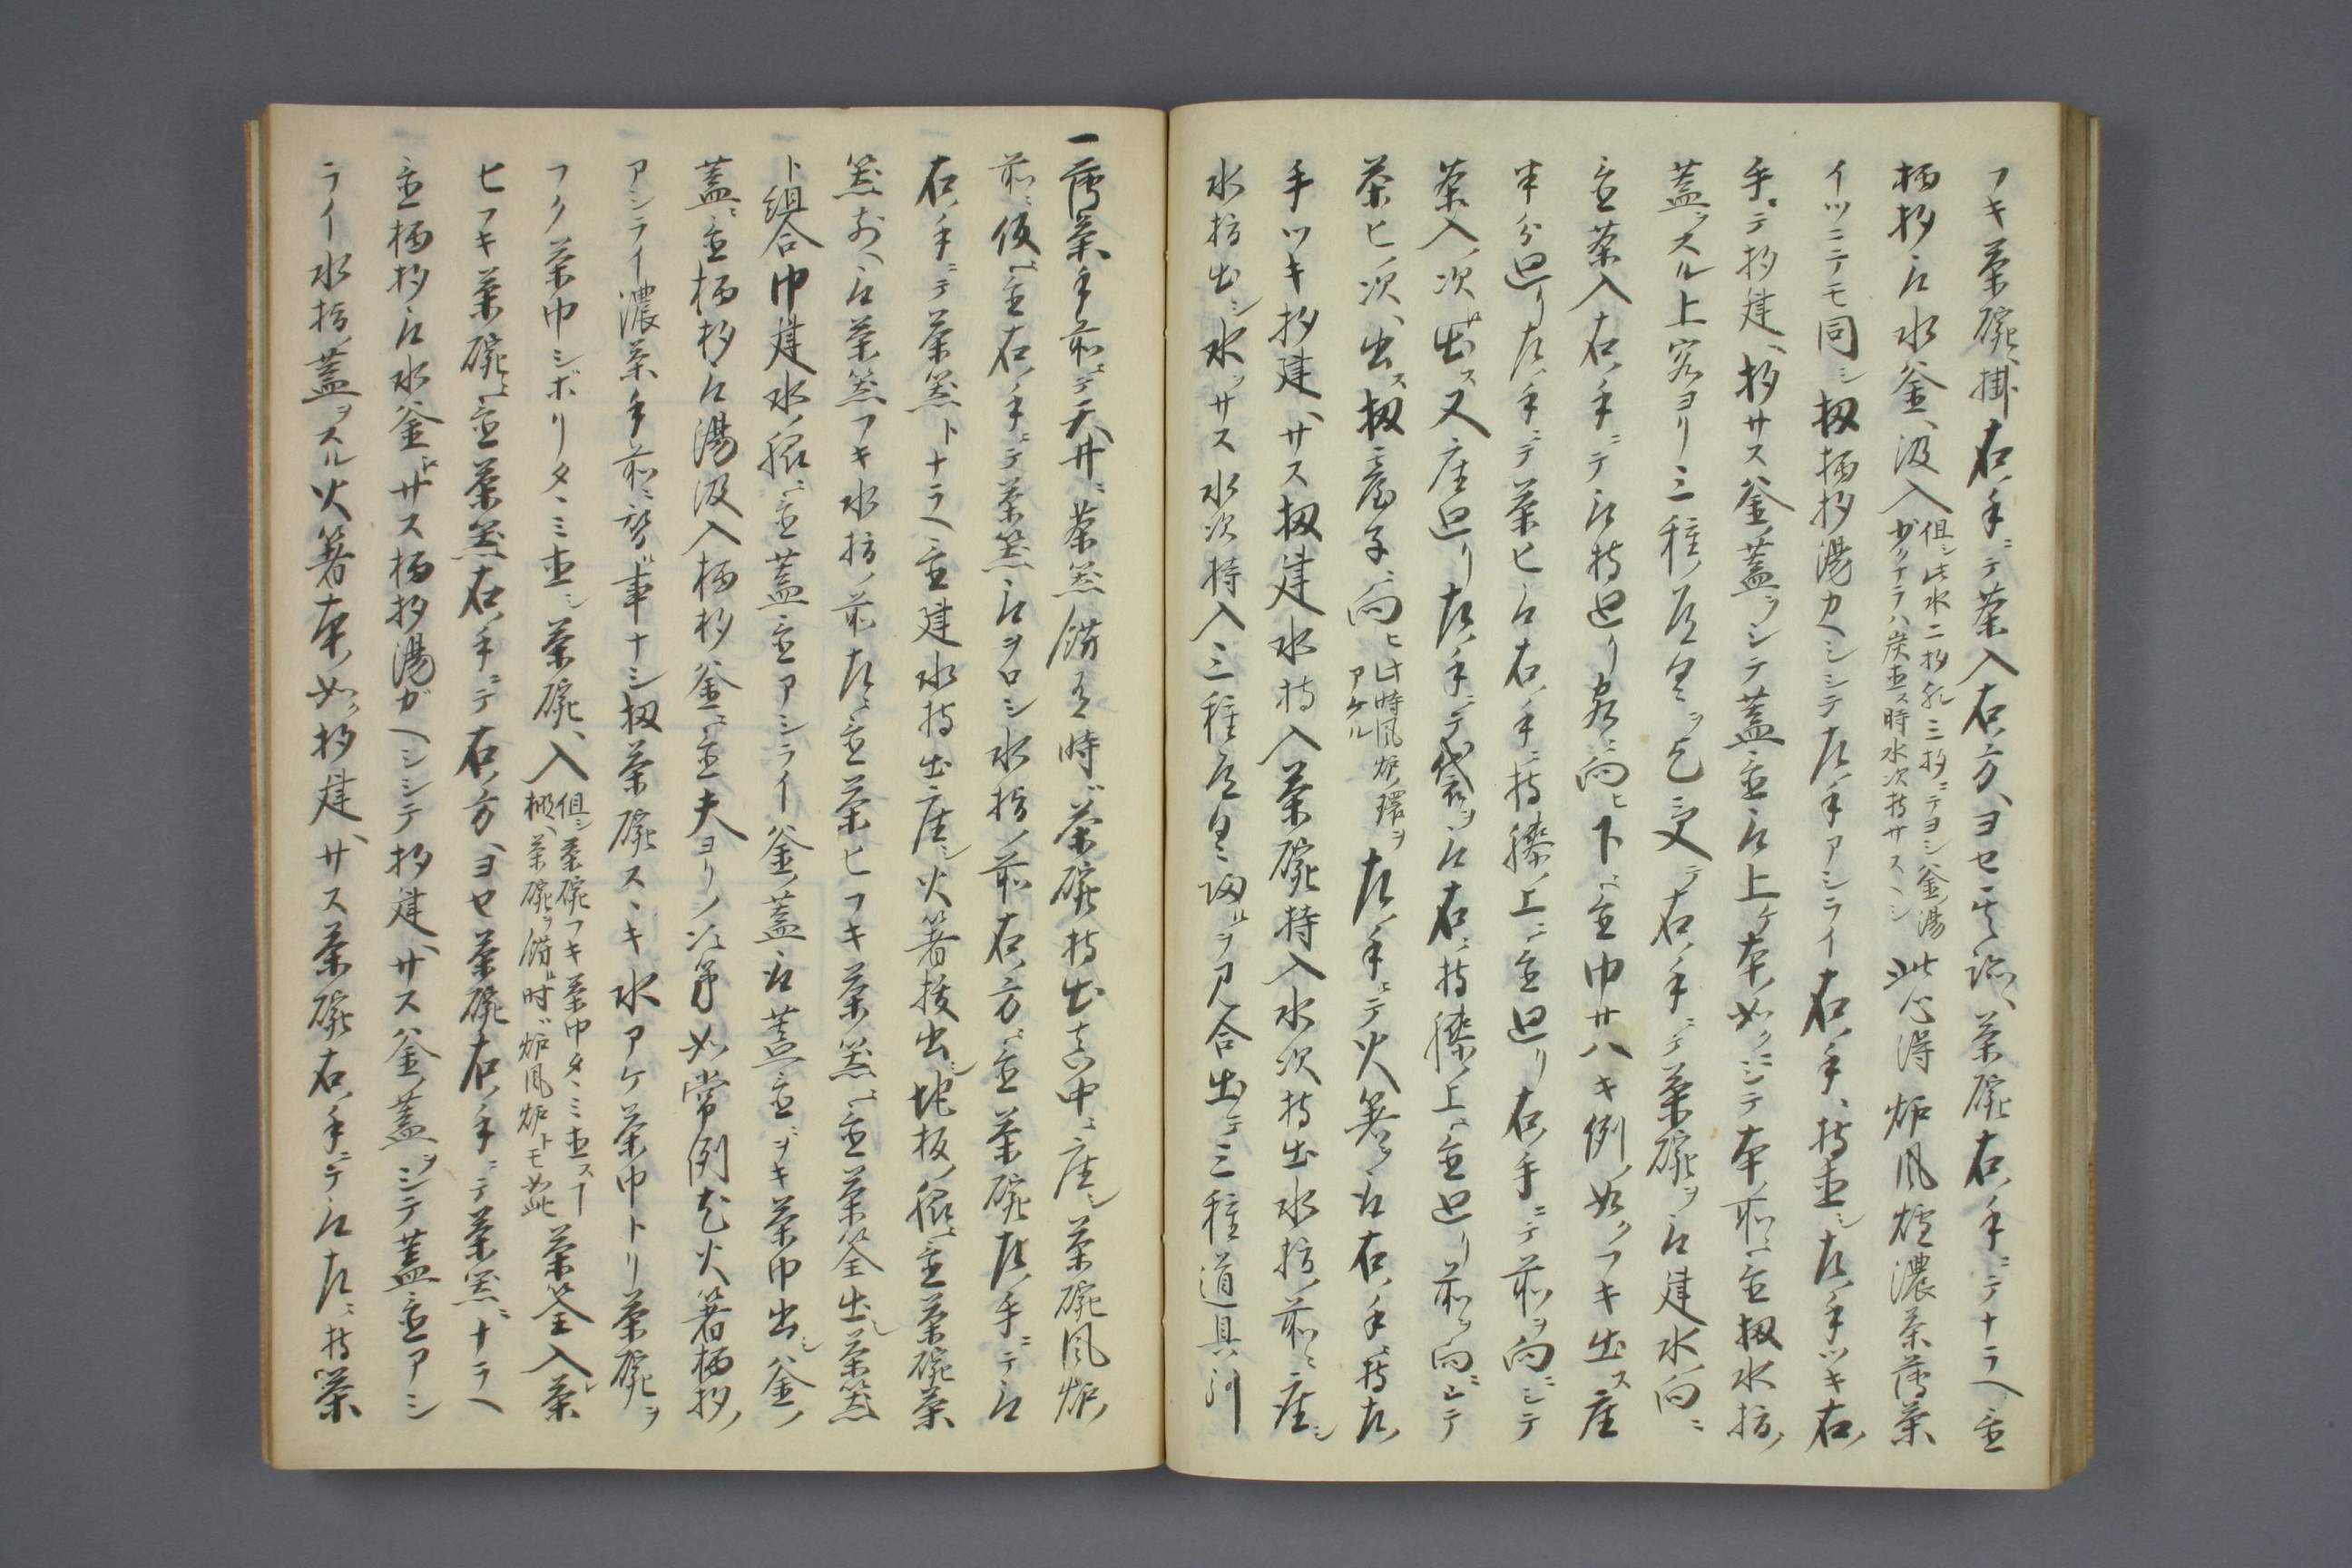 フキ茶碗ヘ掛右ノ手ニテ茶入右ノ方ヘヨセ其跡ヘ茶碗右ノ手ニテナラヘ置
柄杓取水釜ヘ汲入
但シ此水二杓或三杓ニテヨシ釜ノ湯
ガクナラハ炭置ス時水次持サスヘシ
此心得炉風爐濃茶薄茶
イツニテモ同シ扨柄杓湯カヘシシテ左ノ手アシライ右ノ手ヘ持直シ左ノ手ツキ右ノ
手ニテ杓建ヘ杓サス釜ノ蓋ヲシテ蓋置取上ケ本ノ如クニシテ本ノ前ニ置扨水指ノ
蓋ヲスル上客ヨリ三種ノ道具ヲ乞受テ右ノ手ニテ茶碗ヲ取建水ノ向ニ
置茶入右ノ手ニテ取持廻リ客ニ向ヒ下ニ置巾サハキ例ノ如クフキ出ス座
半分廻リ左ノ手ニテ茶ヒ取右ノ手ニ持膝ノ上ニ置廻リ右ノ手ニテ前ヲ向ニシテ
茶入ノ次ヘ出ス又座廻リ左ノ手ニテ袋ヲ取右ニ持膝ノ上ニ置廻リ前ヲ向ニシテ
茶ヒノ次ヘ出ス扨臺子ヘ向
ヒ此時風炉ノ環ヲ
アケル
左ノ手ニテ火箸取右ノ手ニ持左ノ
手ツキ杓建ヘサス扨建水持入茶碗持入水次持出水指ノ前ニ座シ
水指出シ水ヲサス水次持入三種道具返ルヲ見合出テ三種道具引
一薄茶手前ニテ天井ニ茶筅餝有時ハ茶碗持出真中ニ座シ茶碗風炉ノ
前ニ仮ニ置右ノ手ニテ茶筅取ヲロシ水指ノ前右ノ方ニ置茶碗左ノ手ニテ取
右ノ手ニテ茶筅トナラヘ置建水持出座シ火箸抜出シ地板ノ脇ニ置茶碗茶
筅前ヘ取茶筅フキ水指ノ前左ニ置茶ヒフキ茶筅ニ置茶筌出シ茶筅
ト組合巾建水ノ脇ニ置蓋置アシライ釜ノ蓋取蓋置ニヲキ茶巾出シ釜ノ
蓋ニ置柄杓取湯汲入柄杓釜ニ置夫ヨリノ次第如常例尤火箸柄杓ノ
アシライ濃茶手前ニ替ル事ナシ扨茶碗スヽキ水アケ茶巾トリ茶碗ヲ
フク茶巾シボリタヽミ直シ茶碗ヘ入
但シ茶碗フキ茶巾タヽミ直ス丁
棚ヘ茶碗ヲ餝ル時ハ炉風炉トモ如此
茶筌入レ茶
ヒフキ茶碗ニ置茶筅右ノ手ニテ右ノ方ヘヨセ茶碗右ノ手ニテ茶筅ニナラヘ
置柄杓取水釜ヘサス柄杓湯ガヘシシテ杓建ヘサス釜ノ蓋ヲシテ蓋置アシ
ライ水指ノ蓋ヲスル火箸本ノ如ク杓建ヘサス茶碗右ノ手ニテ取左ニ持茶